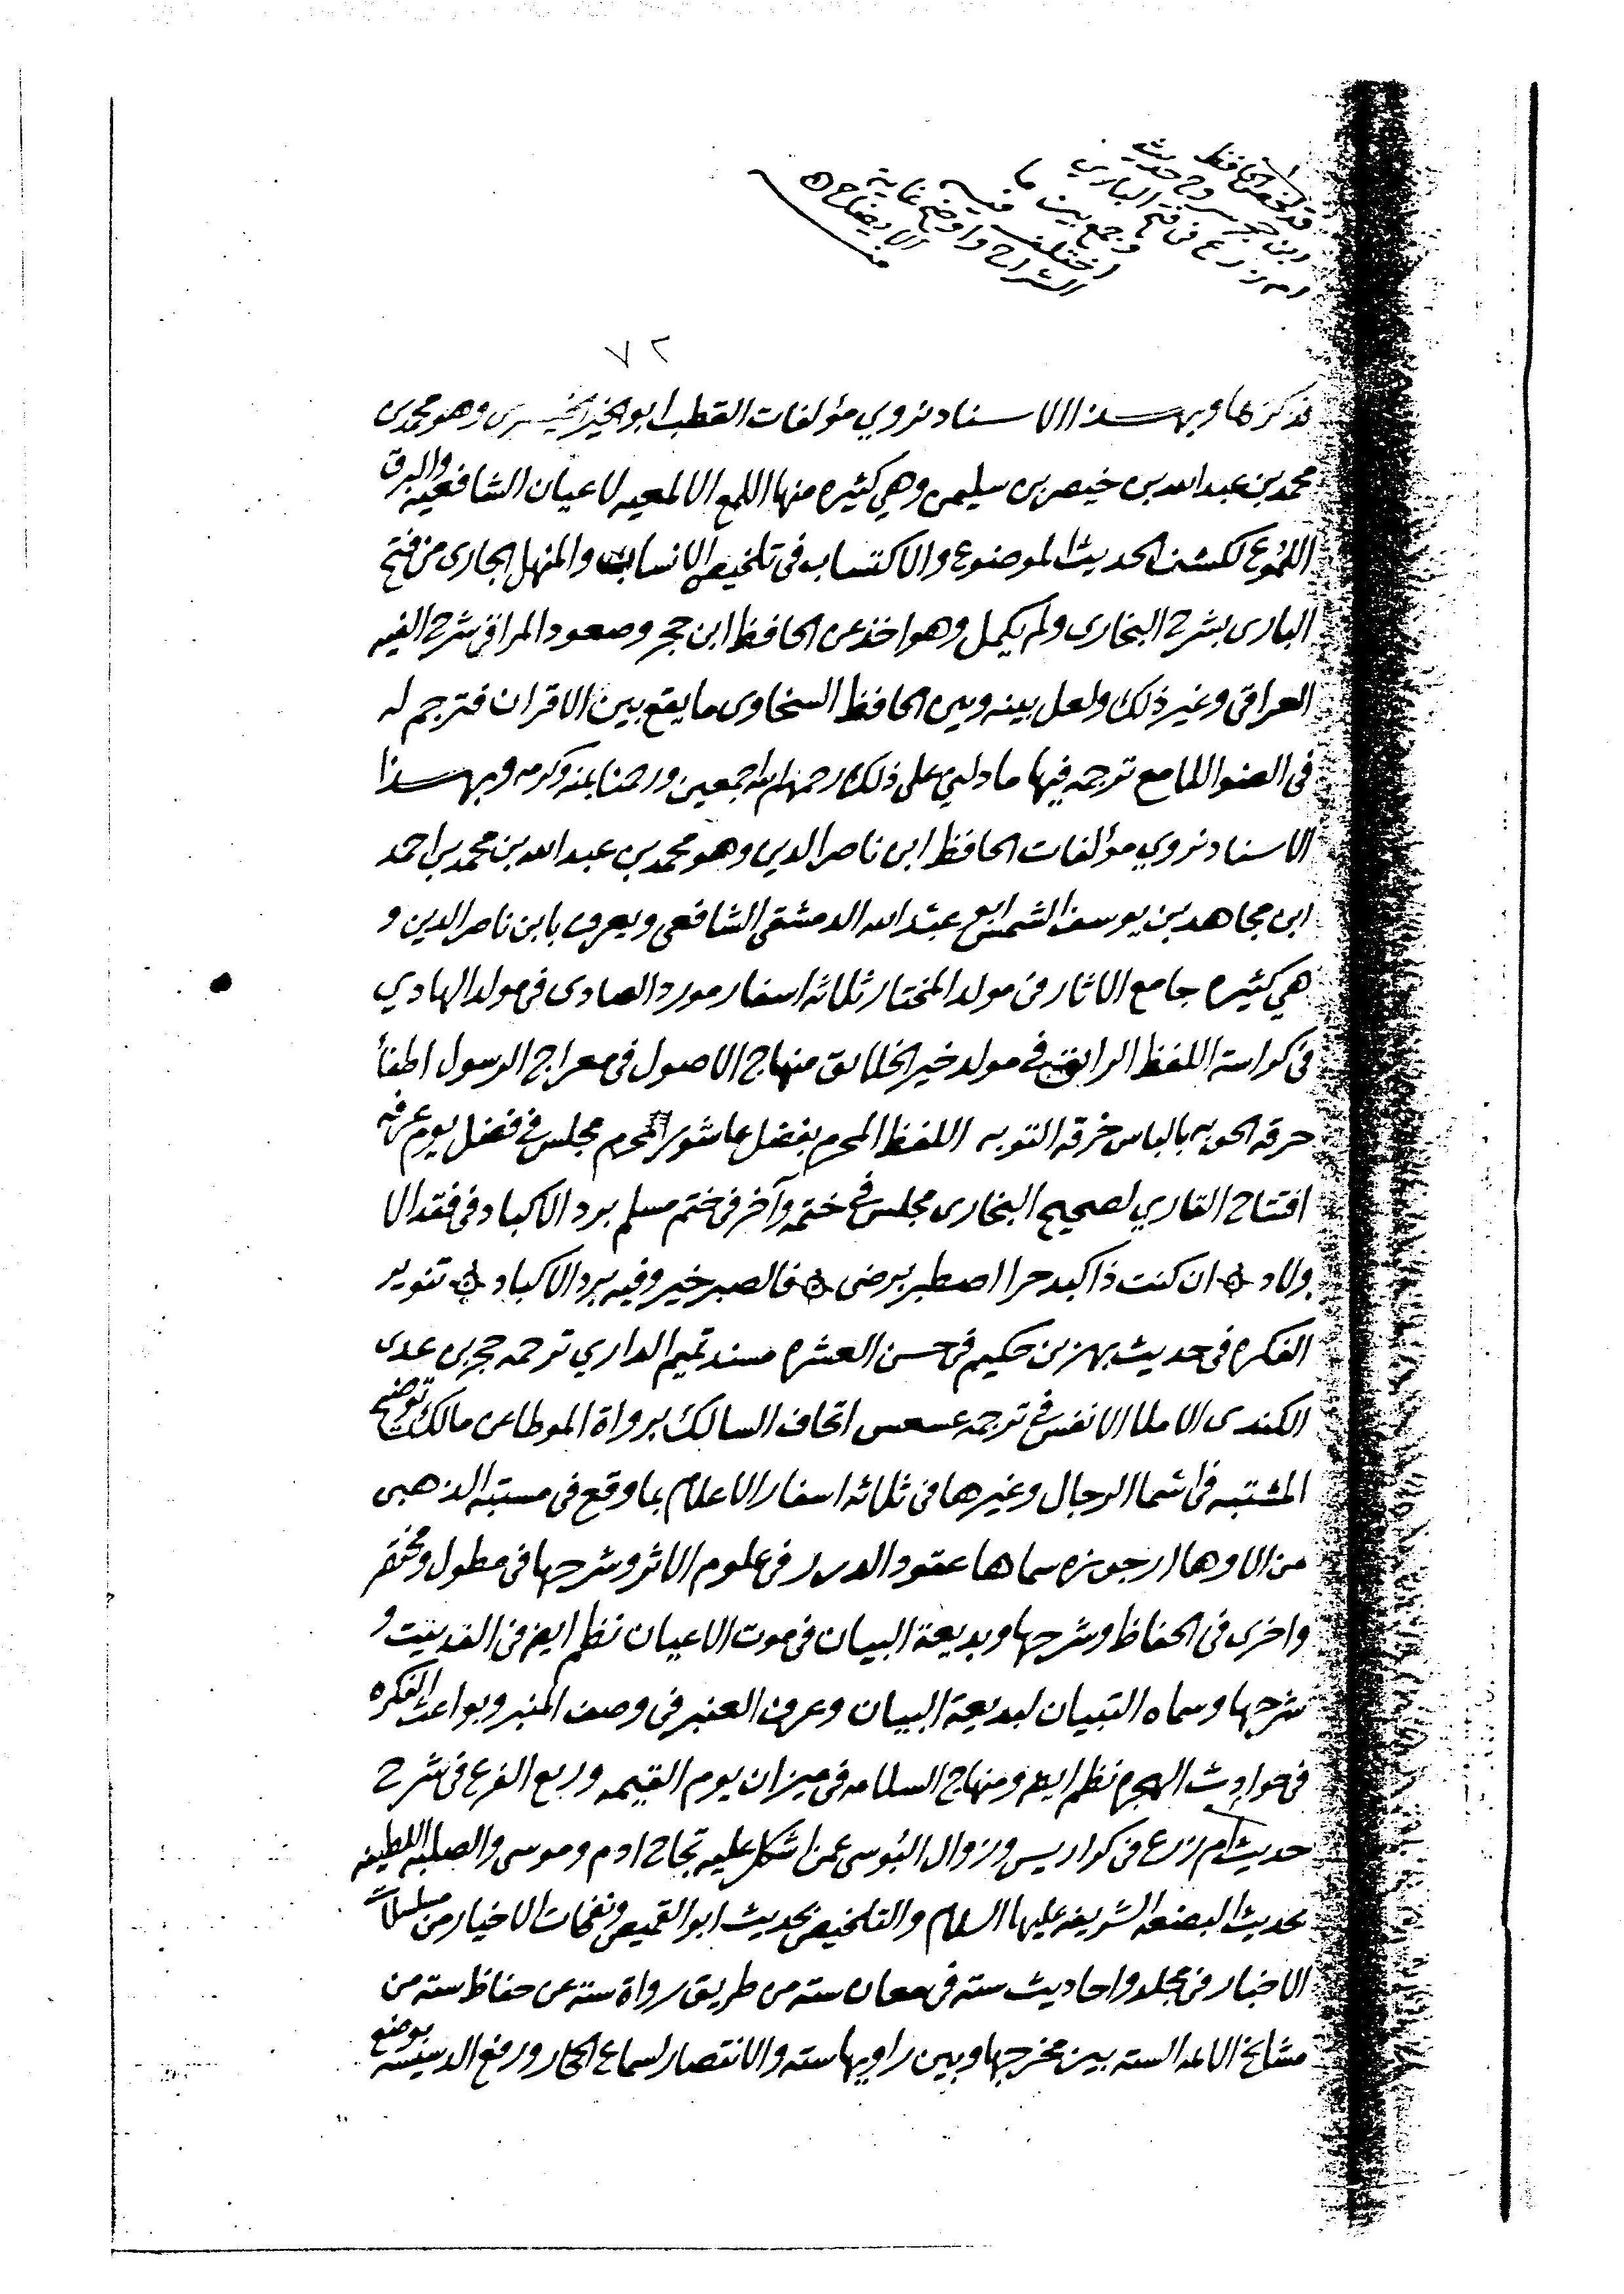 قد لخص الحافظ
ابن حجر شروح حديث
ام زرع في فتح الباري
وجمع بين ما
اختلف فيه
الشراح واوضح غاية
الايضاح ه
منه
٧٢
نذكرها وبهذا الاسناد نروي مؤلفات القطب ابو الخير الخيضري وهو محمد بن
محمد بن عبد الله بن خيضر بن سليمن وهي كثيره منها اللمع الالمعيه لاعيان الشافعيه والبرق
اللموع لكشف الحديث الموضوع والاكتساب في تلخيص الانساب والمنهل الجاري من فتح
الباري بشرح البخاري ولم يكمل وهو اخذ عن الحافظ ابن حجر وصعود المراقي شرح الفيه
العراقي وغير ذلك ولعل بينه وبين الحافظ السخاوي ما يقع بين الاقران فترجم له
في الضوء اللامع ترجمه فيها ما دلني على ذلك رحمهم الله اجمعين ورحمنا بمنه وكرمه وبهذا
الاسناد نروي مؤلفات الحافظ ابن ناصر الدين وهو محمد بن عبد الله بن محمد بن احمد
ابن مجاهد بن يوسف الشمس ابو عبد الله الدمشقي الشافعي ويعرف بابن ناصر الدين و
هي كثيره جامع الاثار في مولد المختار ثلاثه اسفار مورد الصادي في مولد الهادي
في كراسة اللفظ الرايق في مولد خير الخلايق منهاج الاصول في معراج الرسول اطفأ
حرقه الحوبه بالباس خرقه التوبه اللفظ المحرم بفضل عاشورا المحرم مجلس في فضل يوم عرفه
افتتاح القاري لصحيح البخاري مجلس في ختمه وآخر في ختم مسلم برد الاكباد في فقد الا
ولاد ه ان كنت ذا كبد حرا اصطبر برضى ه فالصبر خير وفيه برد الاكباد ه تنوير
الفكره في حديث بهز بن حكيم في حسن العشره مسند تميم الداري ترجمه حجر بن عدي
الكندي الاملا الانفس في ترجمه عسعس اتحاف السالك برواة الموطا عن مالك توضيح
المشتبه في اسما الرجال وغيرها في ثلاثه اسفار الاعلام بما وقع في مشتبه الذهبي
من الاوهام ارجوزه سماها عقود الدرر في علوم الاثر وشرحها في مطول ومختصر
واخرى في الحفاظ وشرحها وبديعة البيان في موت الاعيان نظم ايضا في الف بيت و
شرحها وسماه التبيان لبديعة البيان وعرف العنبر في وصف المنبر وبواعث الفكره
في حوادث الهجره نظم ايضا ومنهاج السلامه في ميزان يوم القيمه وربع الفرع في شرح
حديث ام زرع في كراريس وزوال البؤسى عمن اشكل عليه تحاج ادم وموسى والصلبه اللطيفه
بحديث البضعه الشريفه عليها السلام والتلخيص بحديث ابو القميص ونفحات الاخيار من مسلسلات
الاخبار في مجلد واحاديث سته في معان سته من طريق رواة سته عن حفاظ سته من
مشايخ الائمه السته بين مخرجها وبين راويها سته والانتصار لسماع الحجار ورفع الدسيسه بوضع